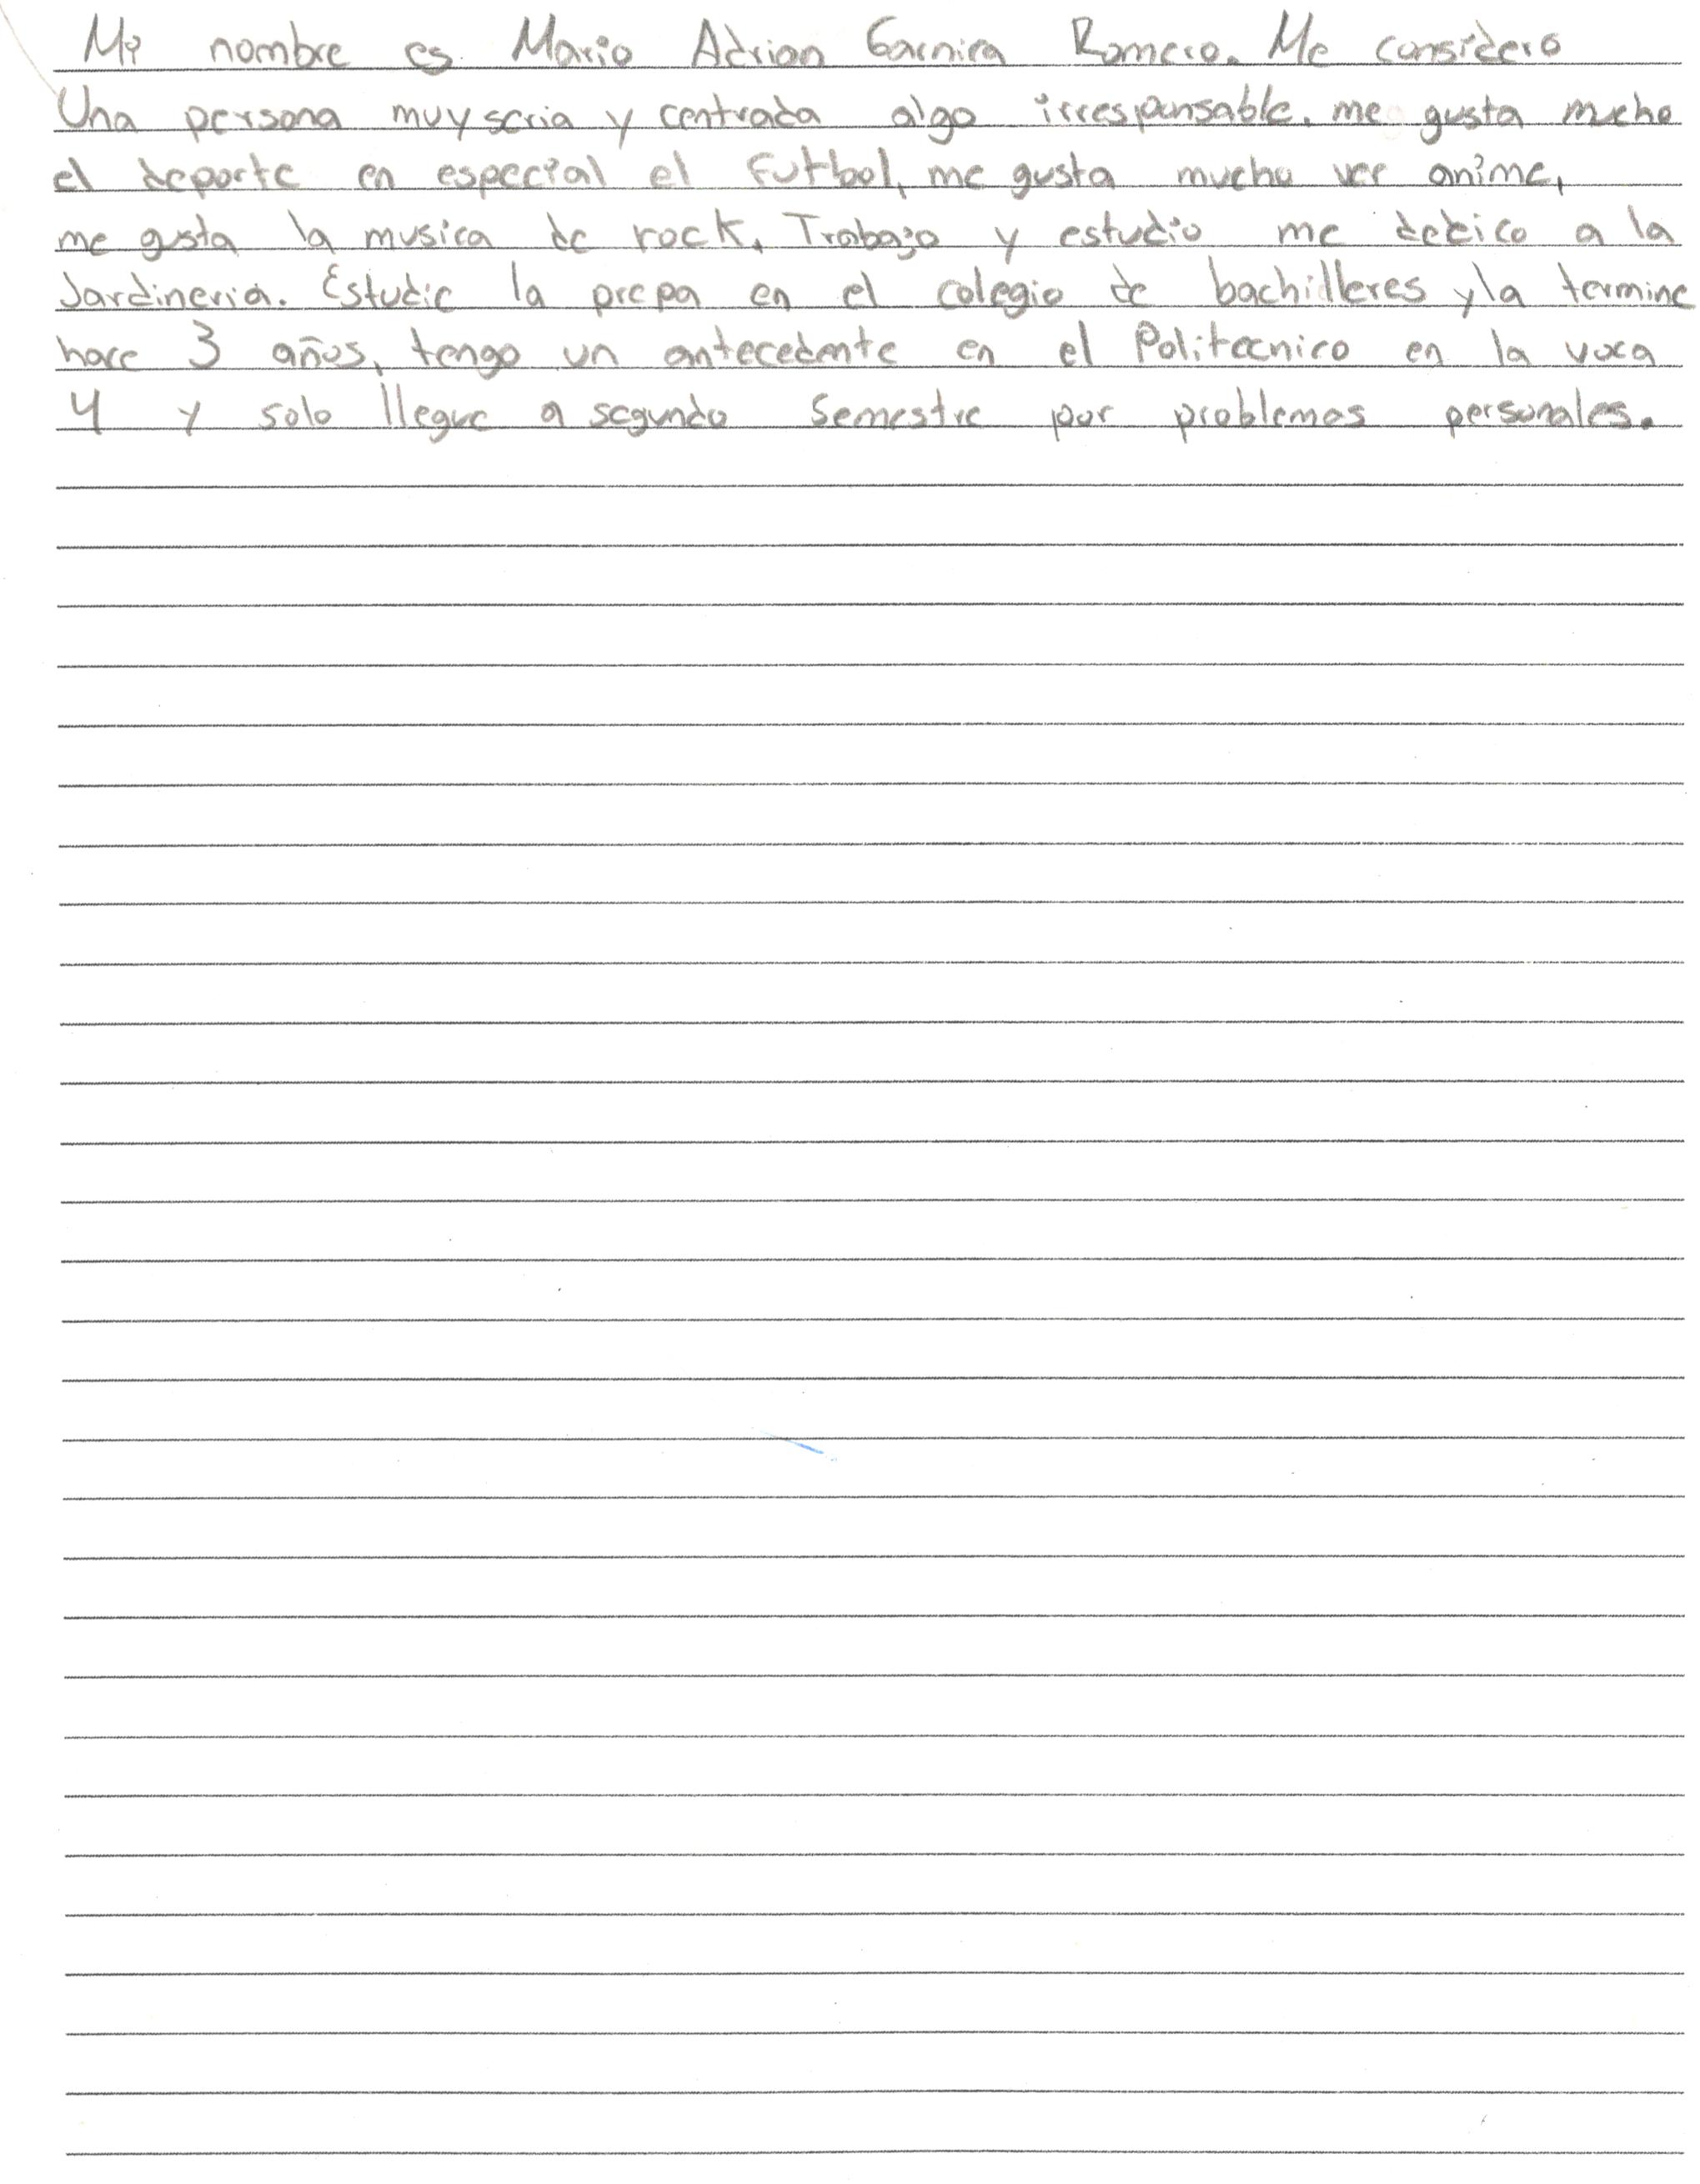 Mi nombre es Mario Adrian Garnica Romero. Me considero
Una persona muy seria y centrada algo irresponsable. me gusta mucho
el deporte en especial el futbol, me gusta mucho ver anime,
me gusta la musica de rock. Trabajo y estudio me dedico a la
Jardineria. Estudie la prepa en el colegio de bachilleres y la termine
hace 3 años, tengo un antecedente en el Politecnico en la voca
4 y solo llegue a segundo semestre por problemas personales.